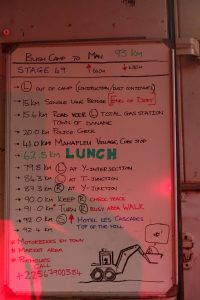 BUSH CAMP TO MAN 93 KM
STAGE 49
→ Ⓛ OUT OF CAMP (CONSTRUCTION / DUST CONTINUES)
→ 15 KM SINGLE LANE BRIDGE [END OF DIRT]
→ 15.6 KM ROAD VEER Ⓛ TOTAL GAS STATION
TOWN OF DANANE
→ 20.0 KM POLICE CHECK
→ 41.0 KM MAHAPLEU VILLAGE, COKE STOP
→ 62.5 KM LUNCH
→ 79.8 KM Ⓛ AT Y-INTERSECTION
→ 86.3 KM Ⓛ AT T-JUNCTION
→ 89.3 KM Ⓡ AT Y-JUNCTION
→ 90.0 KM KEEP Ⓡ
→ 91.0 KM TURN Ⓡ BUSY AREA WALK
→ 92.0 KM Ⓢ ↑ HOTEL LES CASCADES
→ 92.4 KM TOP OF THE HILL
* MOTORBIKES IN TOWN
* MARKET AREA
* POTHOLES
CALL